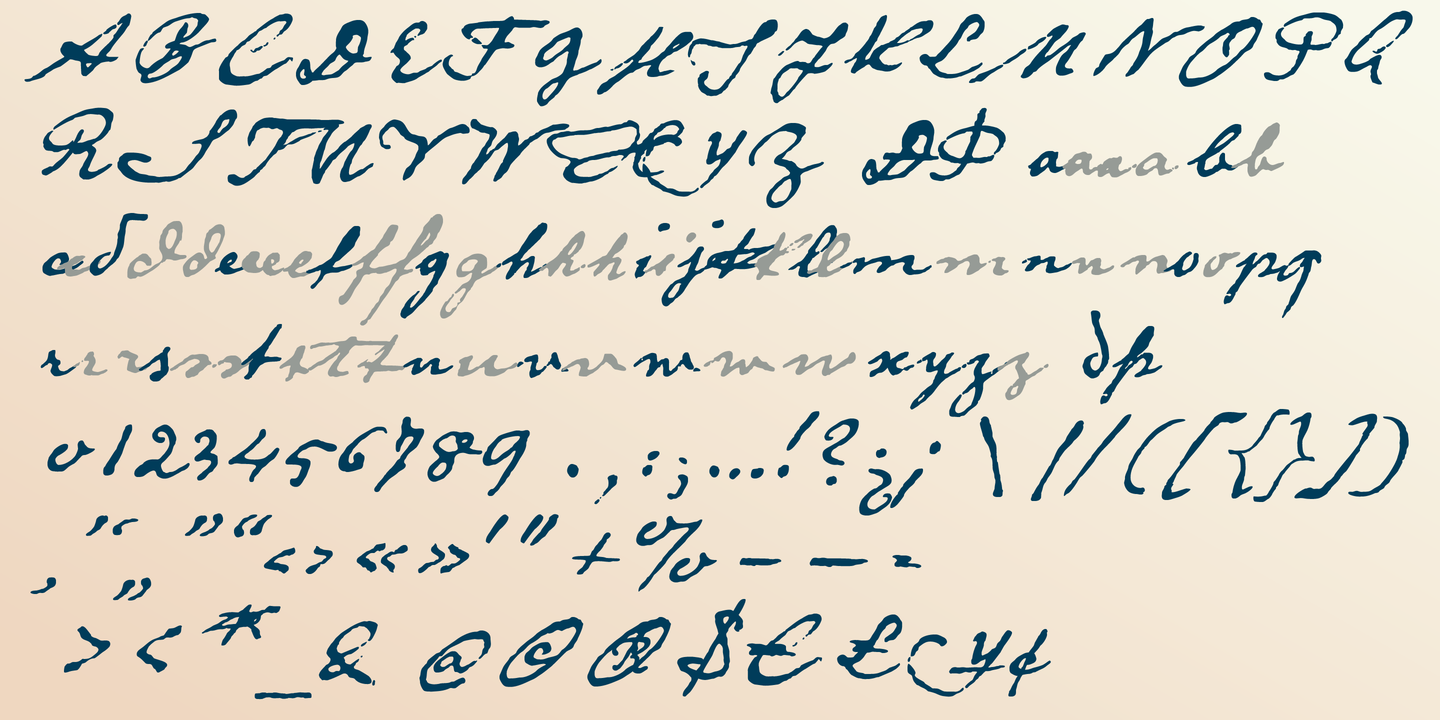 A B C D E F G H I J K L M N O P Q
R S T U V W X Y Z Ð Þ a a a a b b
c c d d d e e e e f f f g g h h h i i j k k l l m m m n n n o o p q
r r r s s s t t t t u u v v w w w x y z z ð þ
0 1 2 3 4 5 6 7 8 9 . , : ; … . ! ? ¿ ¡ \ | / ( [ { } ] )
‘ ’ ” “ ‹ › « » ' " + % – — -
‚ „
> < * _ & @ © ® $ € £ ¥ ¢